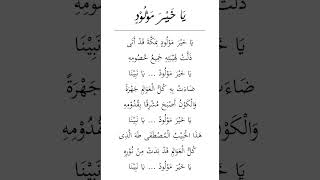 يَا خَيْرَ مَوْلُوْدِ
يَا خَيْرَ مَوْلُودٍ بِمَكَّةَ قَدْ أَتَى
ذَلَّتْ لِهَيْبَتِهِ جَمِيعُ خُصُومِهِ
يَا خَيْرَ مَوْلُودْ ... يَا نَبِيْنَا
ضَاءَتْ بِهِ كُلُّ الْعَوَالِمِ جَهْرَةً
وَالْكَوْنُ أَصْبَحَ مُشْرِقًا بِقُدُوْمِهِ
يَا خَيْرَ مَوْلُودْ ... يَا نَبِيْنَا
هَذَا الْحَبِيْبُ الْمُصْطَفَى طَهَ الَّذِى
كُلُّ الْعَوَالِمِ قَدْ بَدَتْ مِنْ نُوْرِهِ
يَا خَيْرَ مَوْلُودْ ... يَا نَبِيْنَا